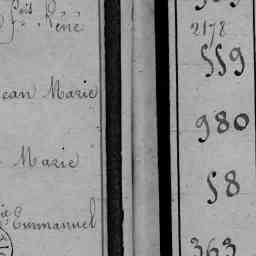 fois René
2178
559
ean Marie
980
Marie
58
Emmanuel
363